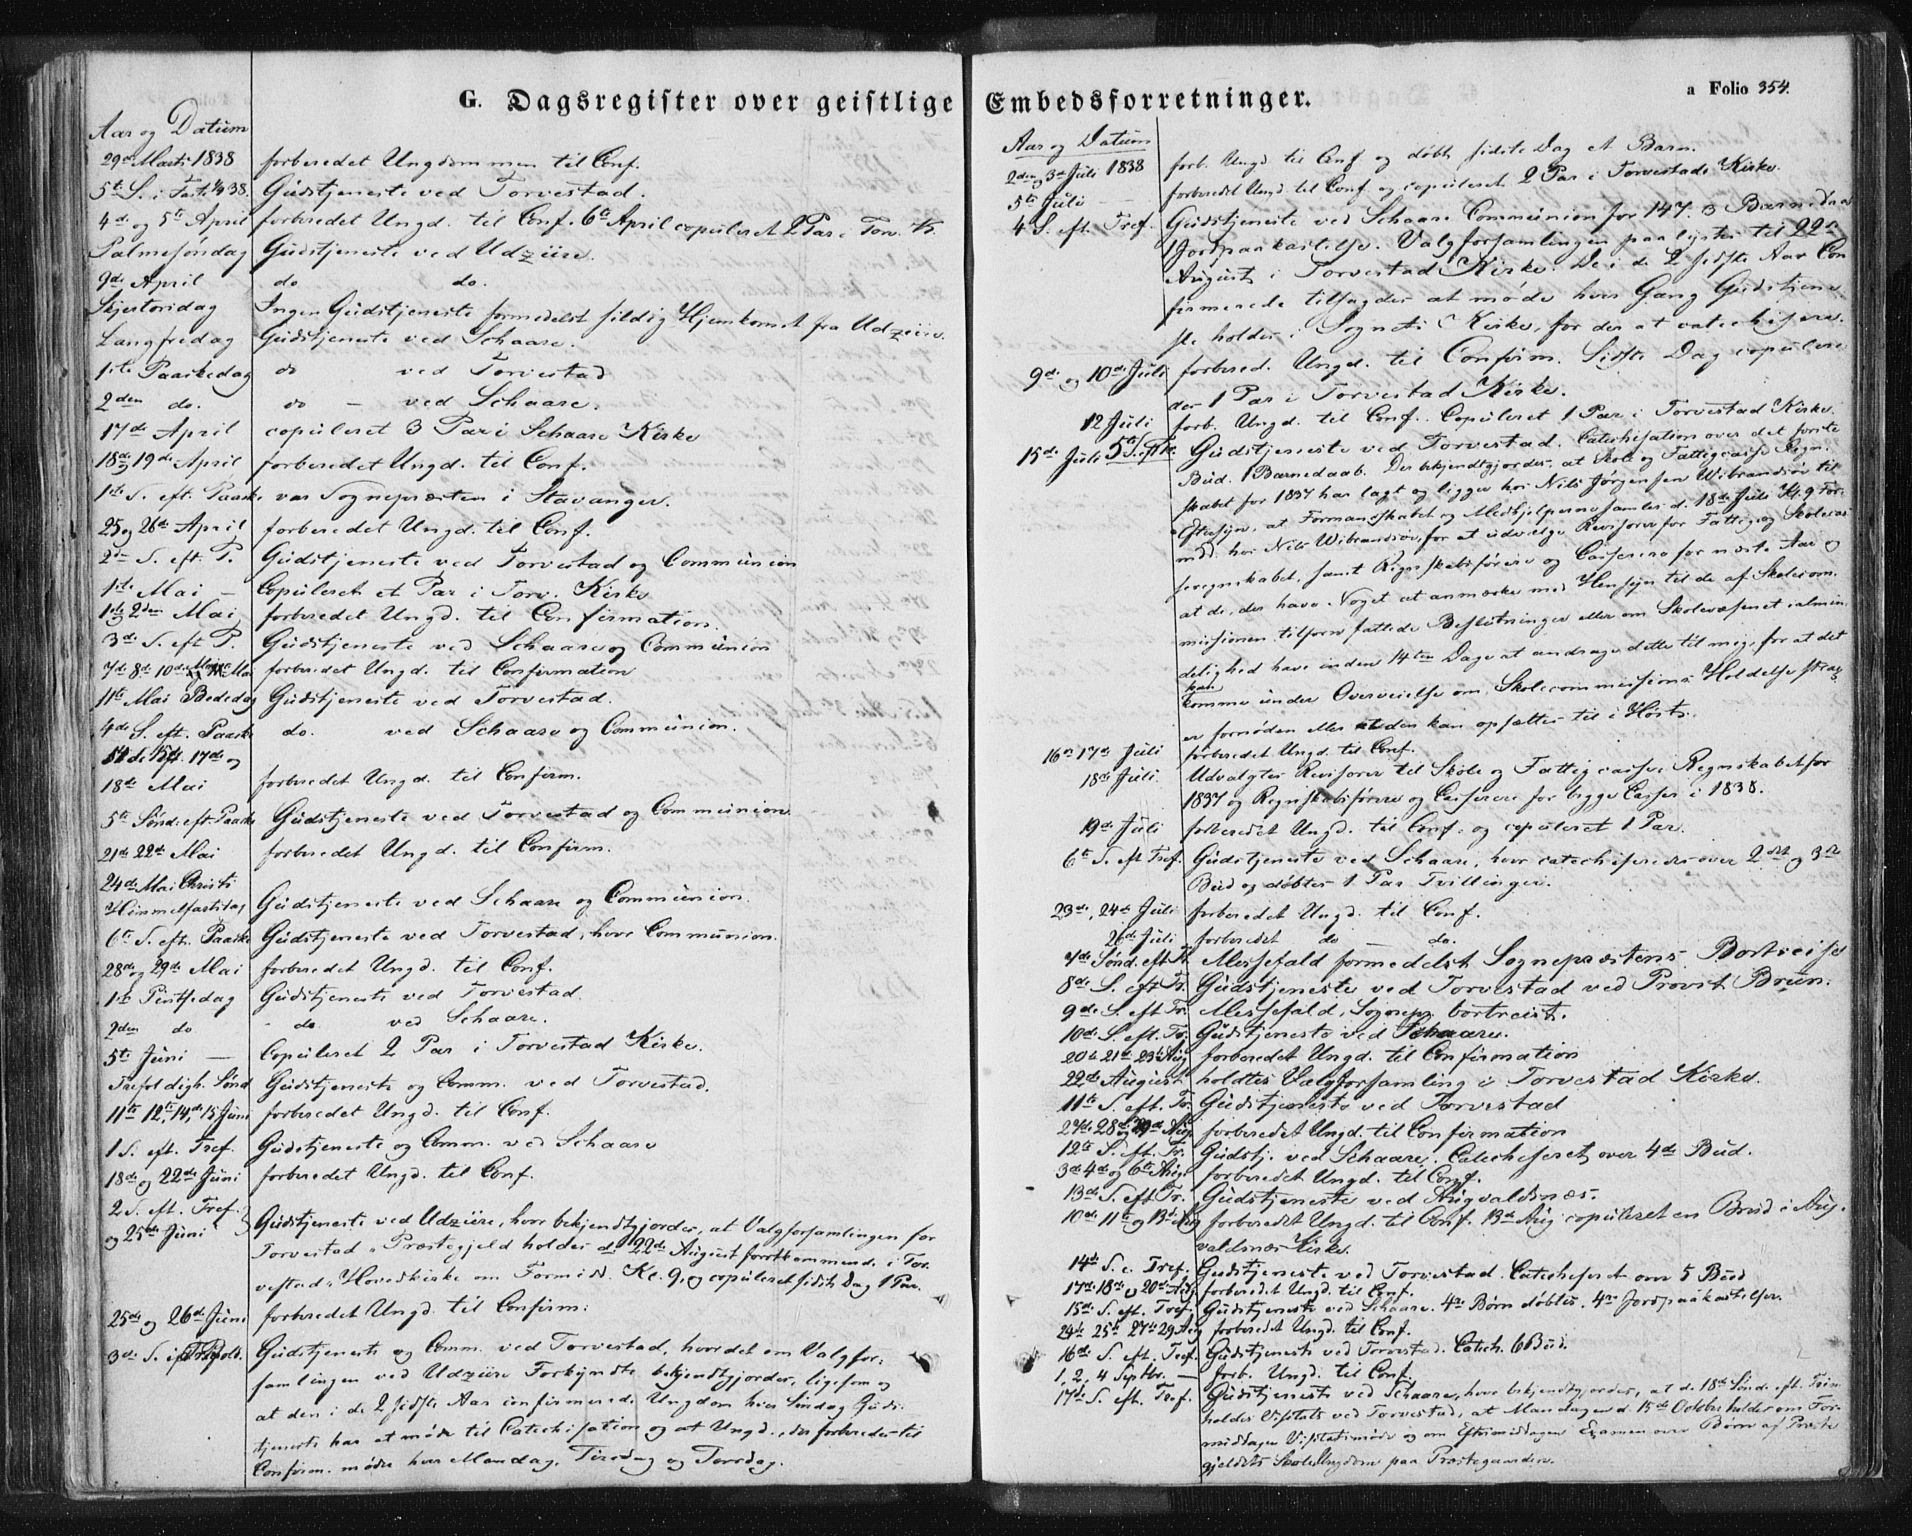 G. Dagsregister over geistlige Embedsforretninger.
a Folio 354.
Aar og Datum
29de Marti 1838 forberedet Ungdommen til Conf.
5te S. i Faste 1/4 38. Gudstjeneste ved Torvestad.
4de og 5te April forberedet Ungd. til Conf. 6te April copuleret 2 Par i Torv. K.
Palmesøndag Gudstjeneste ved Udzüre.
9de April do do.
Skjertorsdag Ingen Gudstjeneste formedelst sildig Hjemkomst fra Udzüre.
Langfredag Gudstjeneste ved Schaare.
1ste Paaskedag do ved Torvestad
2den do. do – ved Schaare.
17de April copuleret 3 Par i Schaare Kirke
18de og 19de April forberedet Ungd. til Conf.
1ste S. eft. Paaske var Sognepræsten i Stavanger.
25 og 26de April forberedet Ungd. til Conf.
2den S. eft. P. Gudstjeneste ved Torvestad og Communion
1ste Mai – Copuleret et Par i Torv. Kirke
1ste og 2den Mai forberedet Ungd. til Confirmation.
3de S. eft P. Gudstjeneste ved Schaare og Communion
7de 8de 10de Mai forberedet Ungd. til Confirmation
11te Mai Bededag Gudstjeneste ved Torvestad.
4de S. eft. Paaske do. ved Schaare og Communion.
17de og
18de Mai forberedet Ungd. til Confirm.
5te Sønd. eft Paaske Gudstjeneste ved Torvestad og Communion
21de 22de Mai forberedet Ungd. til Confirm.
24de Mai Christi
Himmelfartsdag Gudstjeneste ved Schaare og Communion.
6te S. eft. Paaske Gudstjeneste ved Torvestad, hvor Communion.
28de og 29de Mai forberedet Ungd. til Conf.
1ste Pintsedag Gudstjeneste ved Torvestad.
2den do do. ved Schaare.
5te Juni – Copuleret 2 Par i Torvestad Kirke.
Trefoldigh. Sønd Gudstjeneste og Comm. ved Torvestad.
11te 12te, 14de, 15 Juni forberedet Ungd. til Conf.
1 S. eft. Tref. Gudstjeneste og Comm. ved Schaare
18de og 22de Juni forberedet Ungd. til Conf.
2 S. eft. Tref.
og 25de Juni Gudstjeneste ved Udzüre, hvor bekjendtgjordes, at Valgforsamlingen for
Torvestad Præstegjeld holdes d 22de August førstkommende i Tor-
vestads Hovedkirke om Formidd. Kl. 9, og copuleret sidste Dag 1 Par.
25de og 26de Juni forberedet Ungd. til Confirm:
3de S. eft Trefold. Gudstjeneste og Comm. ved Torvestad, hvor det om Valgfor-
samlingen ved Udzüre Forkyndte bekjendtgjordes, ligesom og
at den i de 2 sidste Aar confirmerede Ungdom hver Søndag Guds-
tjeneste har at møde til Catechisation og at Ungd., der forberedes til
Confirm. møder hver Mandag, Tirsdag og Torsdag.
Aar og Datum
2den og 3de Juli 1838 forb. Ungd. til Conf og døbt sidste Dag et Barn.
5te Juli – forberedet Ungd. til Conf og copuleret 2 Par i Torvestads Kirke.
4 S. eft. Tref. Gudstjeneste ved Schaare Communion for 147. 3 Barnedaab
1 Jordpaakastelse. Valgforsamlingen paalystes til 22de
August i Torvestad Kirke. De i de 2 sidste Aar Con
firmerede tilsagdes at møde hver Gang Gudstjene-
ste holdes i Sognets Kirke, for der at catechiseres.
9de og 10de Juli forbered. Ungd. til Confirm. Sidste Dag copulere-
des 1 Par i Torvestad Kirke.
12 Juli forb. Ungd. til Conf. Copuleret 1 Par i Torvestad Kirke.
15de Juli 5te S. eft Tr. Gudstjeneste ved Torvestad. Catechisation over det første
Bud. 1 Barnedaab. Der bekjendtgjordes, at Skole og Fattigcasse Regn-
skabet for 1837 har lagt og ligger hos Nils Jørgensen Wibrandsøe til
Eftersyn, at Formandskabet og Medhjelperne samles d. 18de Juli Kl. 9 For-
midd. hos Nils Wibrandsøe, for at udvælge Revisorer for Fattig og Skolecas-
seregnskabet, samt Regnskabsførere og Casserere for næste Aar og
at de, der have Noget at anmærke med Hensyn til de af Skolecom-
missionen tilforn fattede Beslutninger eller om Skolevæsenet i almin-
delighed have inden 14ten Dage at andrage dette til mig, for at det
kan
komme under Overveielse om Skolecommissions Holdelse strax
er fornøden eller den kan opsættes til i Høst.
16de 17de Juli forberedet Ungd. til Conf.
18de Juli Udvalgtes Revisorer til Skole og Fattigcasse Regnskabet for
1837 og Regnskabsførere og Casserere for begge Casser i 1838.
19de Juli forberedet Ungd. til Conf. og copuleret 1 Par.
6te S. eft Tref. Gudstjeneste ved Schaare, hvor catechiseredes over 2det og 3die
Bud og døbtes 1 Par Tvillinger.
23de, 24de Juli forberedet Ungd. til Conf.
26de Juli forberedet do – do.
7de Sønd. eft Tr. Messefald formedelst Sognepræstens Bortreise
8de S. eft Tr. Gudstjeneste ved Torvestad ved Provst Brun.
9de S. eft Tr. Messefald, Sognep. bortreist.
10de S. eft. Tr. Gudstjeneste ved Schaare.
20de 21de 23de Aug forberedet Ungd. til Confirmation
22de August holdtes Valgforsamling i Torvestad Kirke.
11te S. eft. Tr. Gudstjeneste ved Torvestad
27de 28de og 29de Aug forberedet Ungd. til Confirmation
12te S. eft. Tr. Gudstj. ved Schaare. Catechiseret over 4de Bud.
3de 4de og 6te Aug. forberedet Ungd. til Conf.
13de S. eft Tr. Gudstjeneste ved Augvaldsnæs.
10de 11te og 13de Aug forberedet Ungd. til Conf. 13de Aug copuleret en Brud i Aug-
valdsnæs Kirke.
14de S. e. Tref. Gudstjeneste ved Torvestad. Catechiseret om 5 Bud
17de 18de og 20de Aug forberedet Ungd. til Conf.
15de S. eft. Tref. Gudstjeneste ved Schaare. 4re Børn døbtes. 4re Jordpaakastelser.
24de 25te 27de 29 Aug forberedet Ungd. til Conf.
16de S. eft. Tref. Gudstjeneste ved Torvestad. Catech. 6 Bud.
1, 2, 4 Septbr. – forb. Ungd. til Conf.
17de S. eft. Tref. Gudstjeneste ved Schaare, hvor bekjendtgjordes, at de 18de Sønd. eft. Trin
holdes Visitats ved Torvestad, at Mandagen d. 15de October holdes om For-
middagen Visitatsmøde og om Eftermiddagen Examen over Børn af Præste-
gjeldets Skoleungdom paa Præstegaarden.